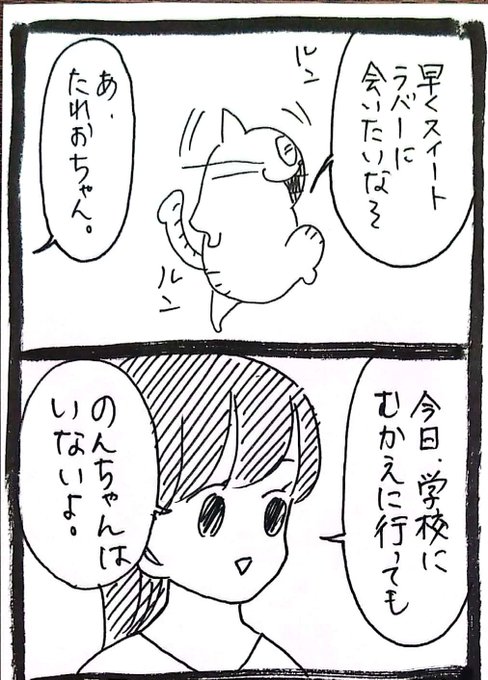 早くスイート
ラバーに
会いたいなぁ
ルン
ルン
あ、
たれおちゃん。
今日、学校に
むかえに行っても
のんちゃんは
いないよ。